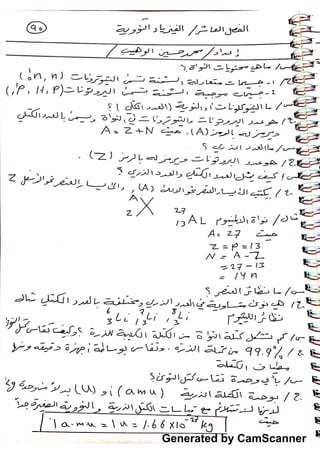 ٩٥
الفصل العاشر / الفيزياء النووية
إعداد / محمد حسين الوهيب
س/ ماهي محتويات النواة؟
ج/ ١- جسيمات متعادلة الشحنة تسمى النيوترونات (n, ¹₀n)
٢- جسيمات موجبة الشحنة تسمى البروتونات (P, H, ¹₁P)
س/ ما النيوكلونات أو النوية (العدد الكتلي)؟
ج/ هو عدد البروتونات والنيوترونات في النواة ويسمى بالعدد الكتلي
ويرمز له بالرمز (A). حيث A = Z + N
س/ ما العدد الذري؟
ج/ هو عدد البروتونات ويرمز له بالرمز (Z).
س/ كيف يمثل العدد الكتلي والعدد الذري؟
ج/ يكتب إلى يسار العنصر نحو الاعلى (A) وإلى يسار العنصر نحو الاسفل Z
A
X
Z
مثال/ نواة الالمنيوم ²⁷₁₃AL
حيث A = 27
Z = P = 13
N = A - Z
= 27 - 13
= 14 n
س/ ما نظائر العنصر؟
ج/ هي نوى متساوية في العدد الذري ومختلفة بالعدد الكتلي مثال
نظائر الليثيوم ⁶₃Li ⁷₃Li ⁸₃Li
س/ كم تشكل كتلة النواة من الكتلة الكلية للذرة؟ وكيف تقاس كتل النوى؟
ج/ 99.9% من كتلة الذرة. وتقاس بواسطة أجهزة دقيقة ومنها
مطياف الكتلة
س/ بأي وحدة تقاس كتل النوى؟
ج/ بوحدة الكتلة الذرية (amu) أو (u) بدلا من وحدة kg
لأنها تتلائم مع قياسات الكتل الذرية والنووية الصغيرة جدا
حيث 1 a.mu = 1 u = 1.66 x 10⁻²⁷ kg
Generated by CamScanner